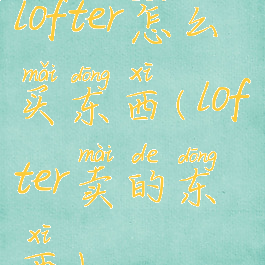 lofter怎么
mǎi dōng xī
买东西(lof
mài de dōng
ter卖的东
xī
西)